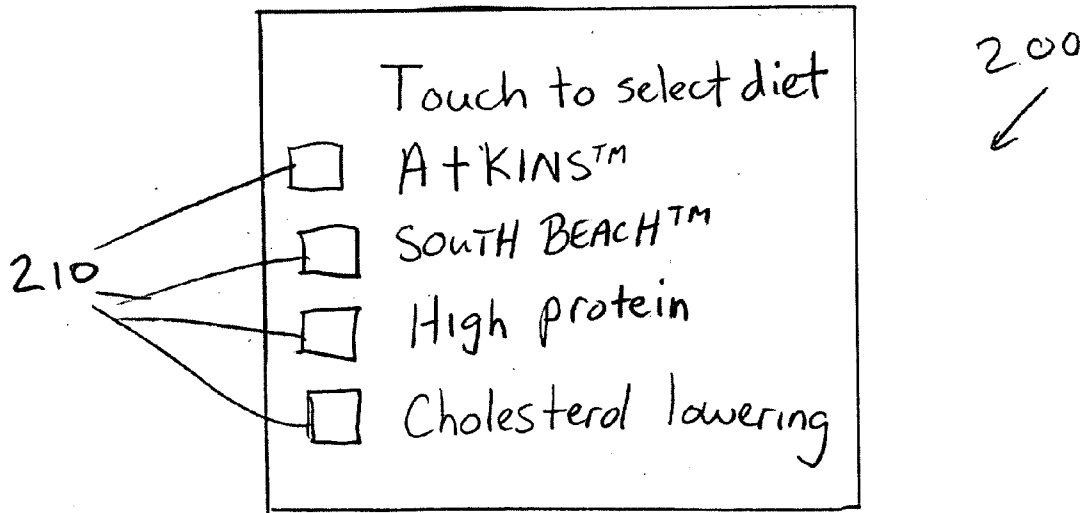 200
Touch to select diet
AtKINS™
SOUTH BEACH™
210
High protein
Cholesterol lowering